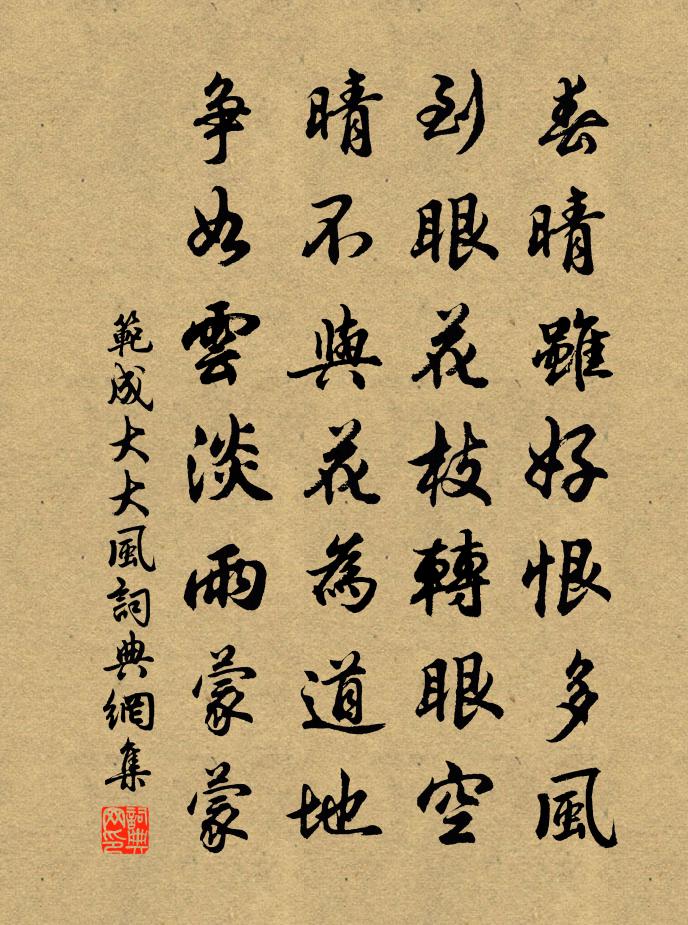 春晴雖好恨多風
到眼花枝轉眼空
晴不與花為道地
爭如雲淡雨蒙蒙
範成大大風詞典網集
詞典网印